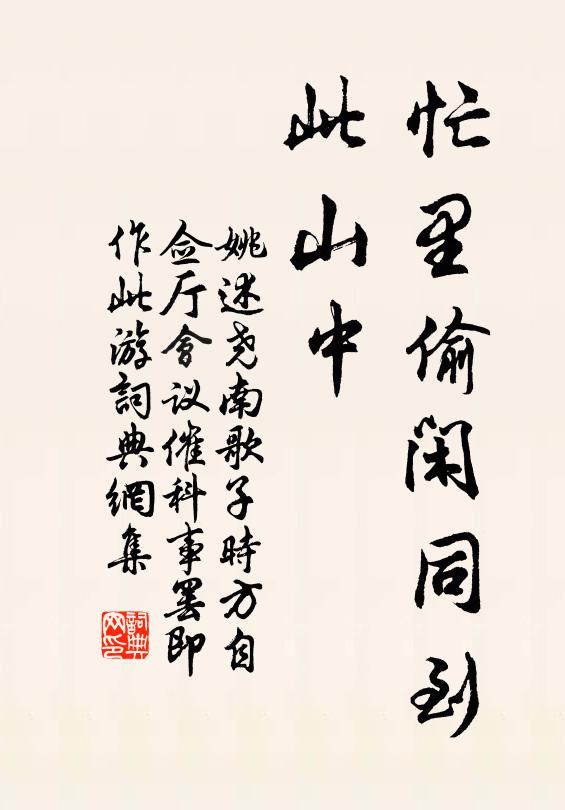 忙里偷闲同到
此山中
姚述尧南歌子時方自
佥厅會议催科事罢即
作此游詞典網集
詞典
网印